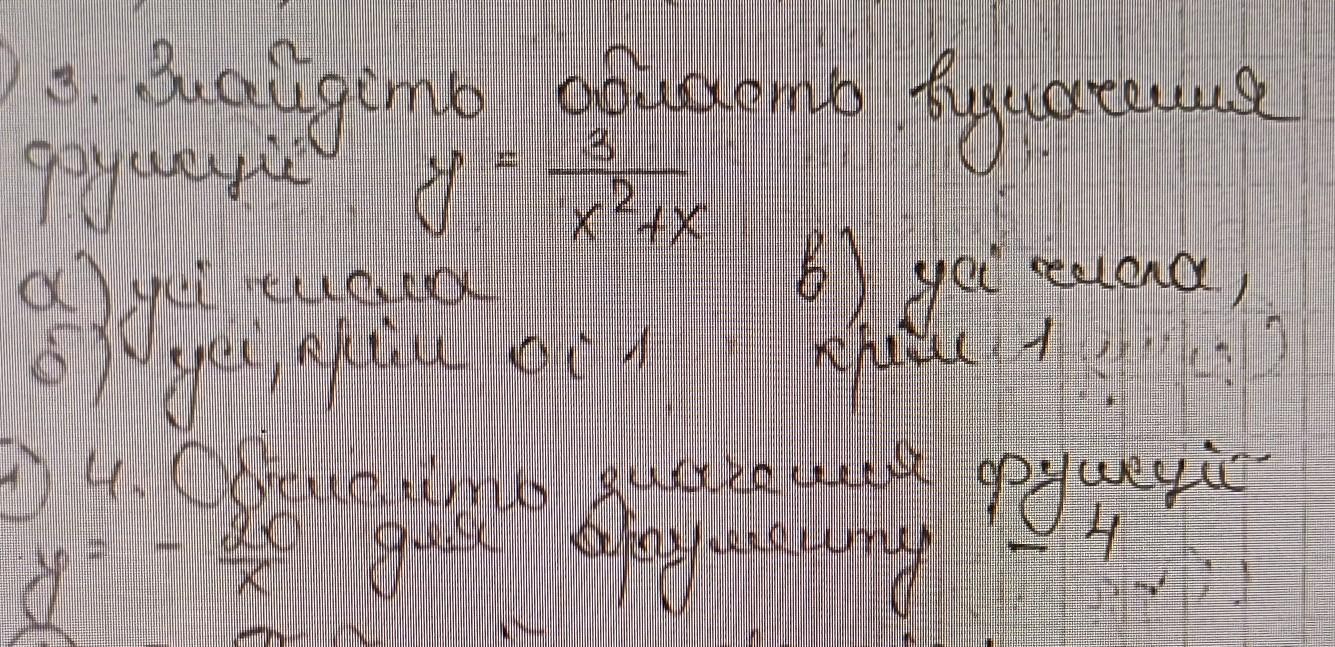 3. Знайдіть область визначення
функції y = 3/(x²+x)
а) усі числа
б) усі, крім 0 і 1
в) усі числа,
крім 1
4. Обчисліть значення функції
y = - 20/x для аргументу - 4